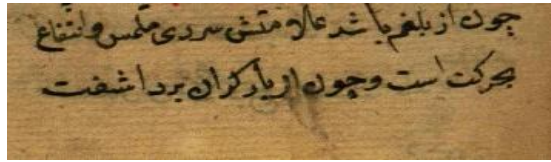 چون از بلغم باشد علامتش سردی ملمس و انتفاع
بحرکت است و چون از بار گران برداشتن